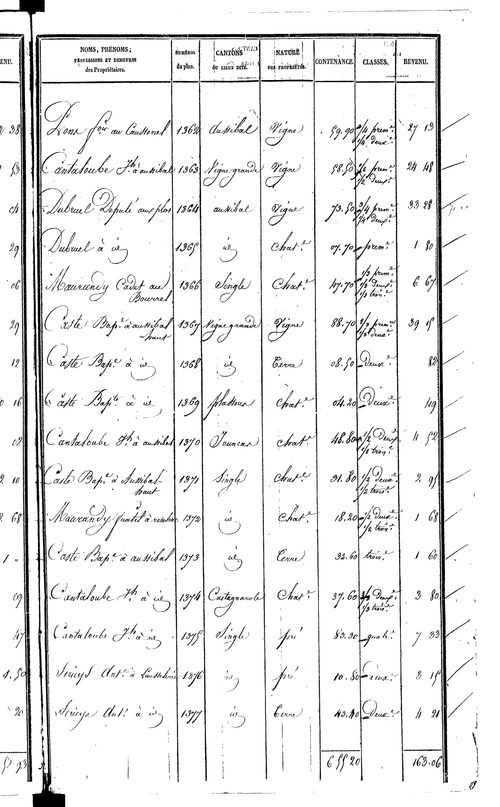 NOMS, PRÉNOMS, PROFESSIONS ET DEMEURES des Propriétaires. NUMÉROS du plan. CANTONS OU LIEUX DITS. NATURE DES PROPRIÉTÉS. CONTENANCE. CLASSES. REVENU.
1362 aussibal Vigne 59.90 3/4 prem.e 1/4 deux.e 27 13
Cantaloube Jh à aussibal 1363 Vigne grande Vigne 58.50 1/2 prem.e 1/2 deux.e 24 48
Dubruel Député aux plos 1364 aussibal Vigne 73.50 3/4 prem.e 1/4 deux.e 33 28
Dubruel à id 1365 id Chat.e 07.70 prem.e 1 80
Maurandy Cadet au Bourrel 1366 Single Chat.e 47.70 1/3 prem.e 1/3 deux.e 1/3 trois.e 6 67
Caste Bap.e à aussibal haut 1367 Vigne grande Vigne 88.70 2/3 prem.e 1/3 deux.e 39 15
Caste Bap.e à id 1368 id Terre 08.50 Deux.e 82
Caste Bap.te à id 1369 Chat.e 04.20 Deux.e 49
Cantaloube Jh à aussibal 1370 Chat.e 48.80 1/2 Deux.e 1/2 trois.e 4 52
Caste Bap.e à Aussibal haut 1371 Single Chat.e 31.80 1/2 deux.e 1/2 trois.e 2 95
Maurandy 1372 id Chat.e 18.20 1/2 deux.e 1/2 trois.e 1 68
Caste Bap.e à aussibal 1373 id Terre 32.60 trois.e 1 60
Cantaloube Jh à id 1374 Castagnarole Chat.e 37.60 Deux.e trois.e 3 80
Cantaloube Jh à id 1375 Single pré 83.30 quatr.e 7 33
Serieys Ant.e à 1376 id pré 10.80 deux.e 3 15
Serieys Ant.e à id 1377 id Terre 43.40 Deux.e 4 21
6 55 20 163.06